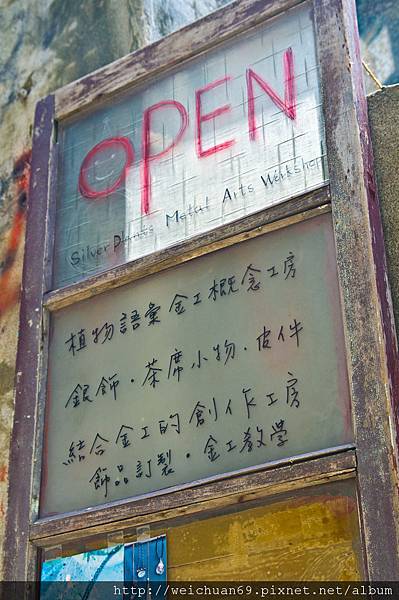 OPEN
Silver Plants Metal Arts Workshop
植物語彙金工概念工房
銀飾．茶席小物．皮件
結合金工的創作工房
飾品訂製．金工教學
http://weichuan69.pixnet.net/album